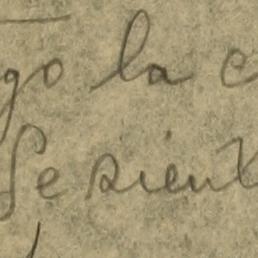 go la
Se sient